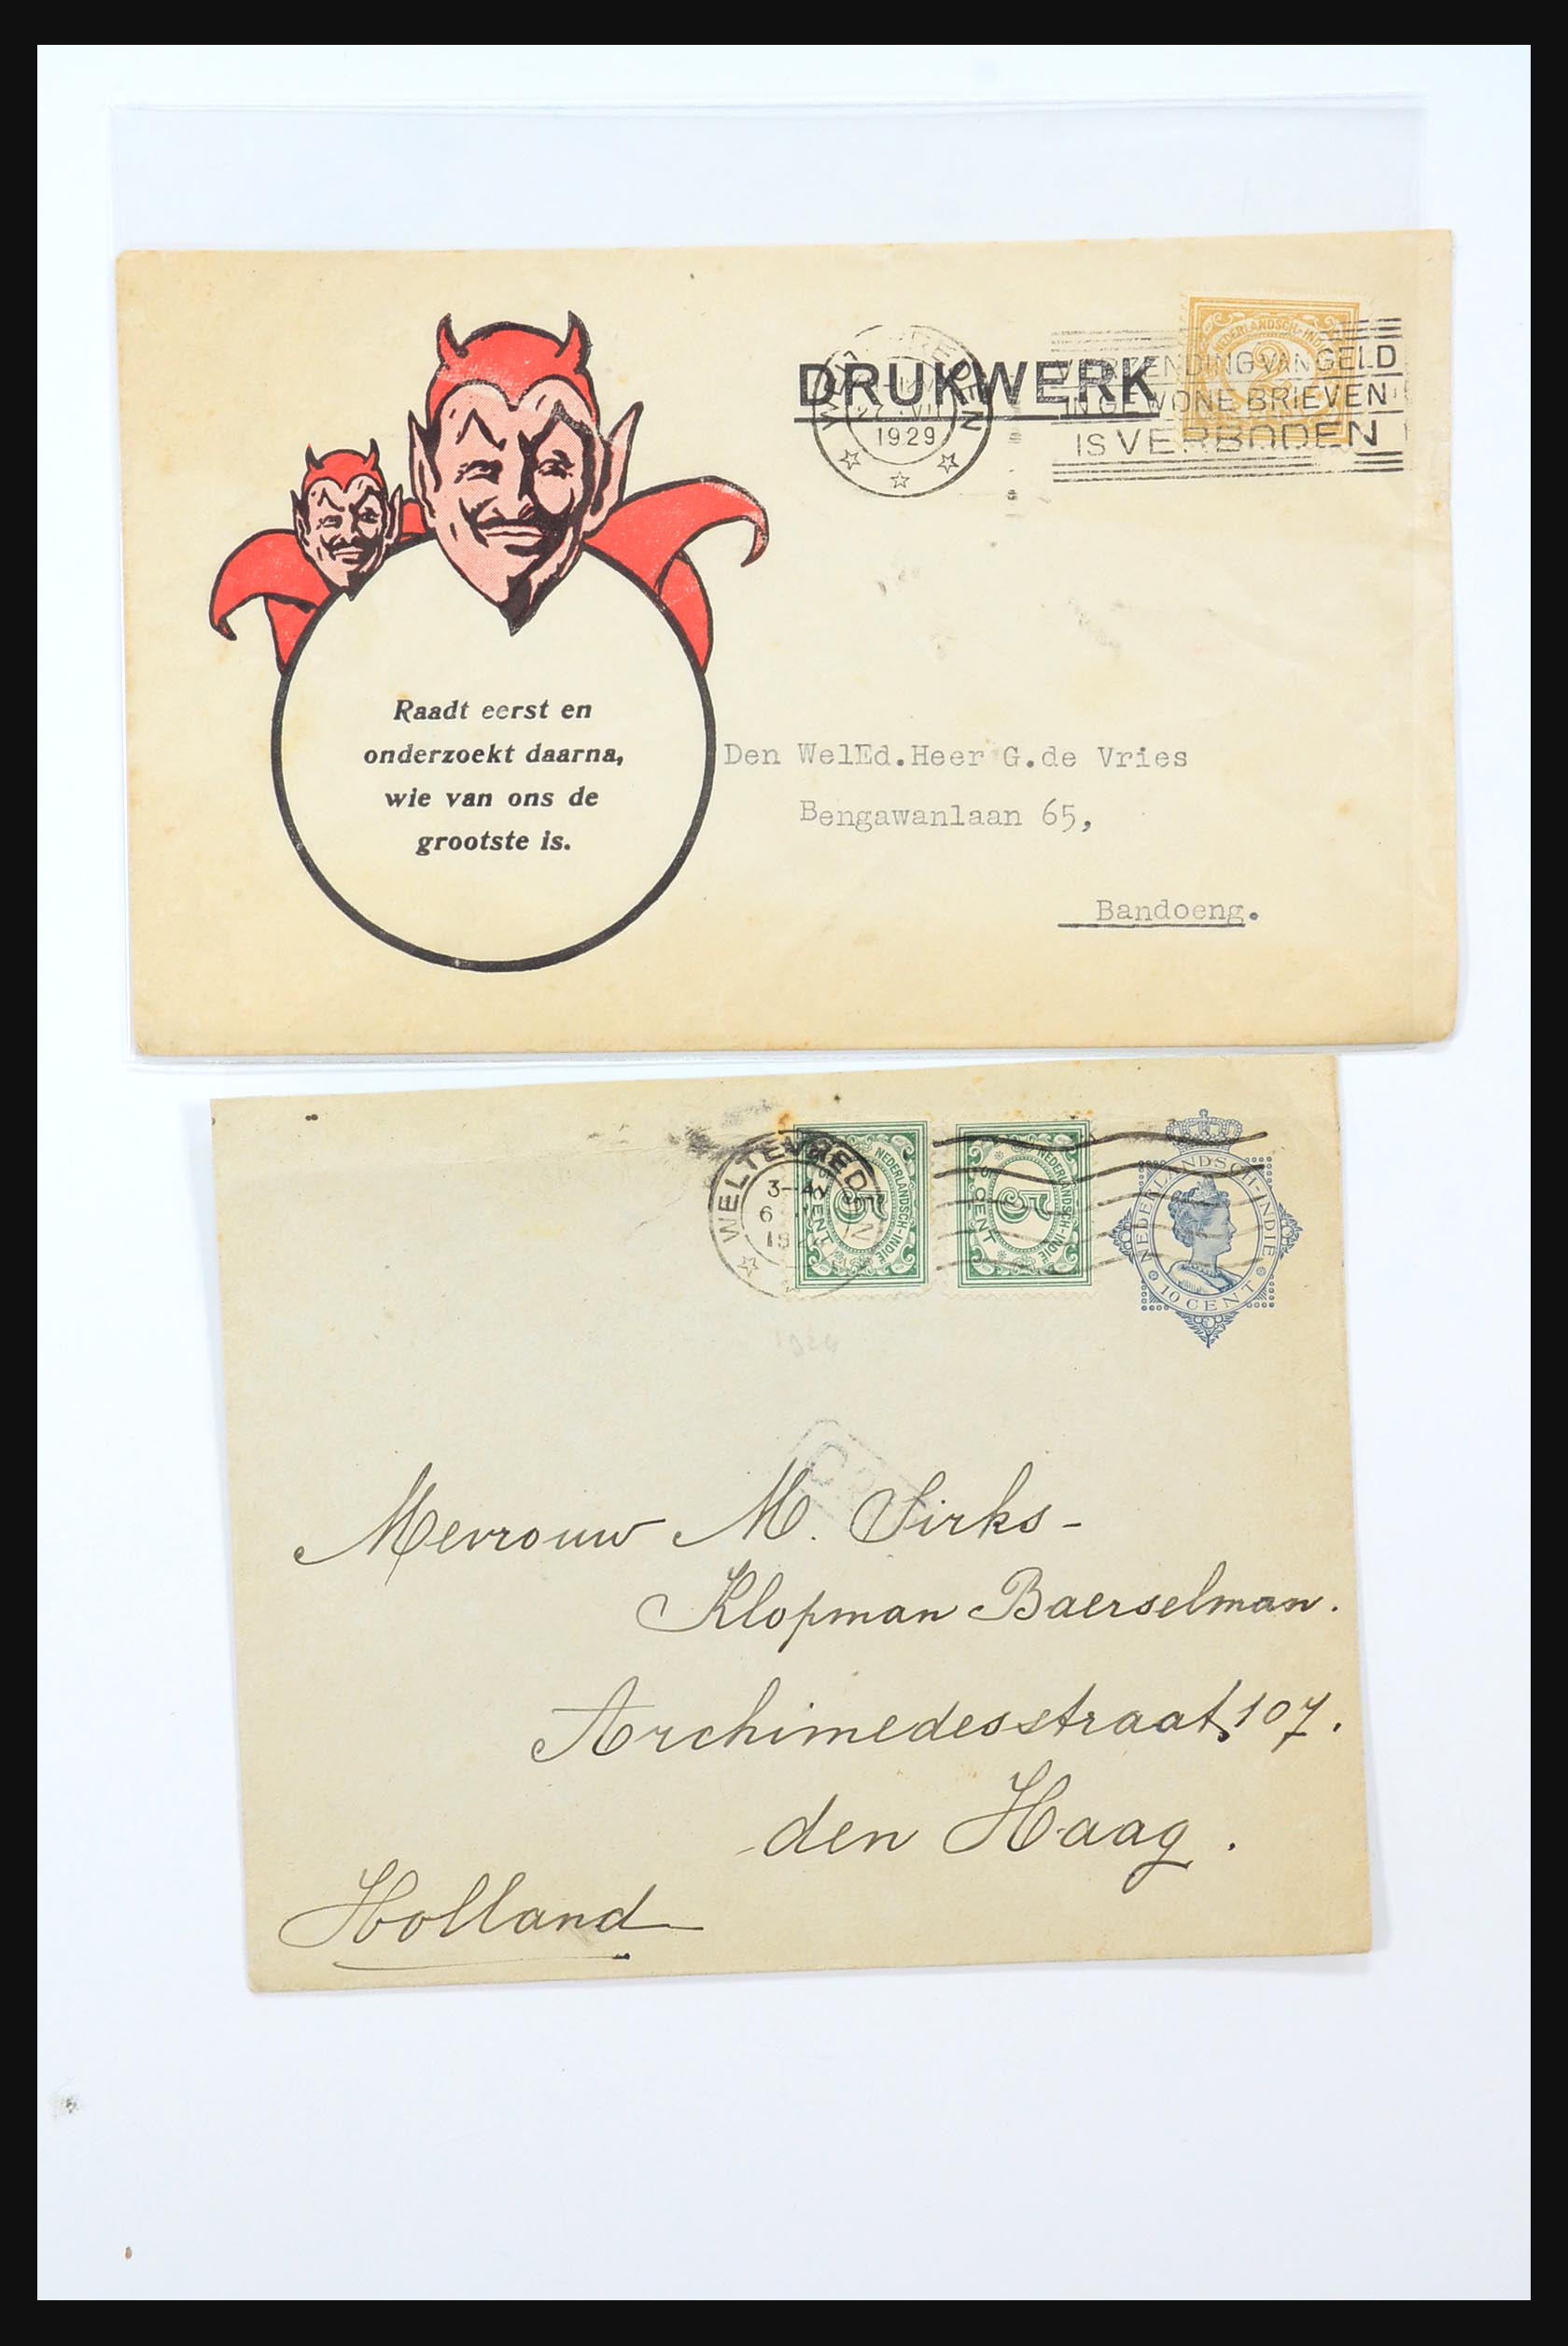 DRUKWERK
1929
NEDERLANDSCH-INDIE
VERZENDING VAN GELD
IN GEWONE BRIEVEN
IS VERBODEN
Raadt eerst en
onderzoekt daarna,
wie van ons de
grootste is.
Den WelEd.Heer G.de Vries
Bengawanlaan 65,
Bandoeng.
WELTEVREDEN
NEDERLANDSCH-INDIE
5
CENT
NEDERLANDSCH-INDIE
5
5 CENT
NEDERLANDSCH-INDIE
10 CENT
1924
Mevrouw M. Sirks-
Klopman Baerselman.
Archimedesstraat, 107.
den Haag.
Holland